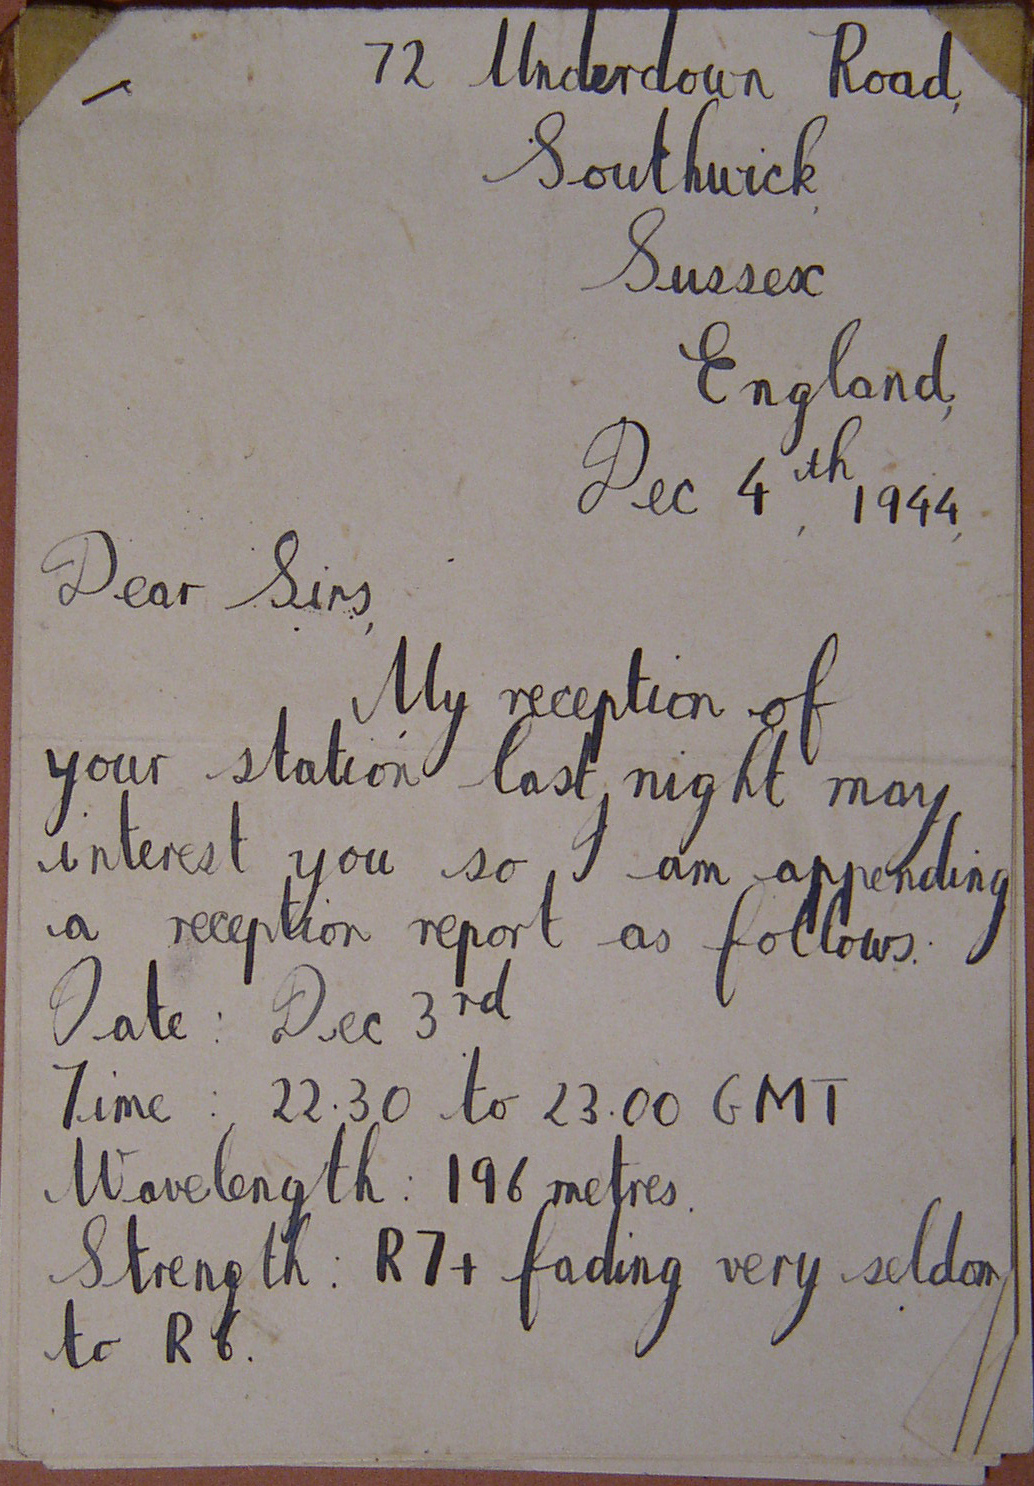 72 Underdown Road,
Southwick,
Sussex
England,
Dec 4th, 1944,
Dear Sirs,
My reception of
your station last night may
interest you so I am appending
a reception report as follows.
Date : Dec 3rd
Time : 22.30 to 23.00 GMT
Wavelength : 196 metres.
Strength : R7+ fading very seldom
to R6.